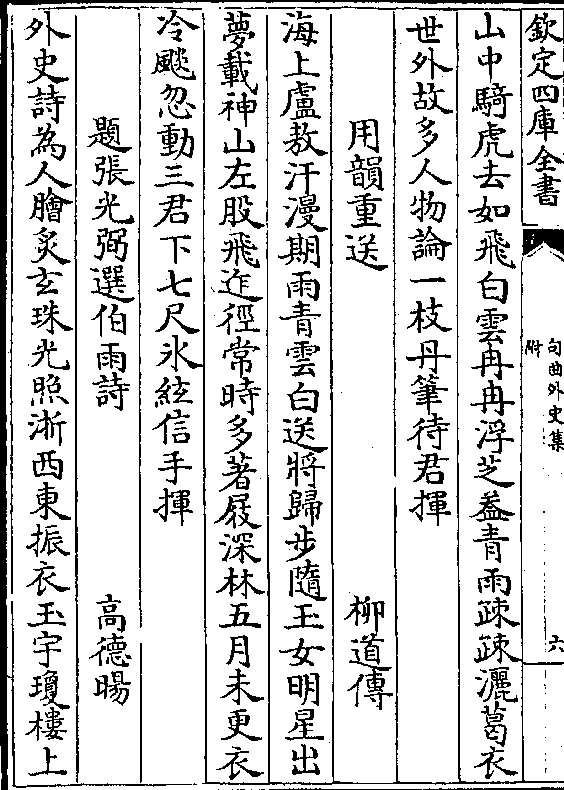 欽定四庫全書
句曲外史集
附
六
山中騎虎去如飛白雲冉冉浮芝葢青雨疎疎灑葛衣
世外故多人物論一枝丹筆待君揮
用韻重送
柳道傳
海上盧敖汗漫期雨青雲白送將歸步隨玉女明星出
夢載神山左股飛迮徑常時多著屐深林五月未更衣
冷颷忽動三君下七尺氷絃信手揮
題張光弼選伯雨詩
高德暘
外史詩為人膾炙玄珠光照淛西東振衣玉宇瓊樓上